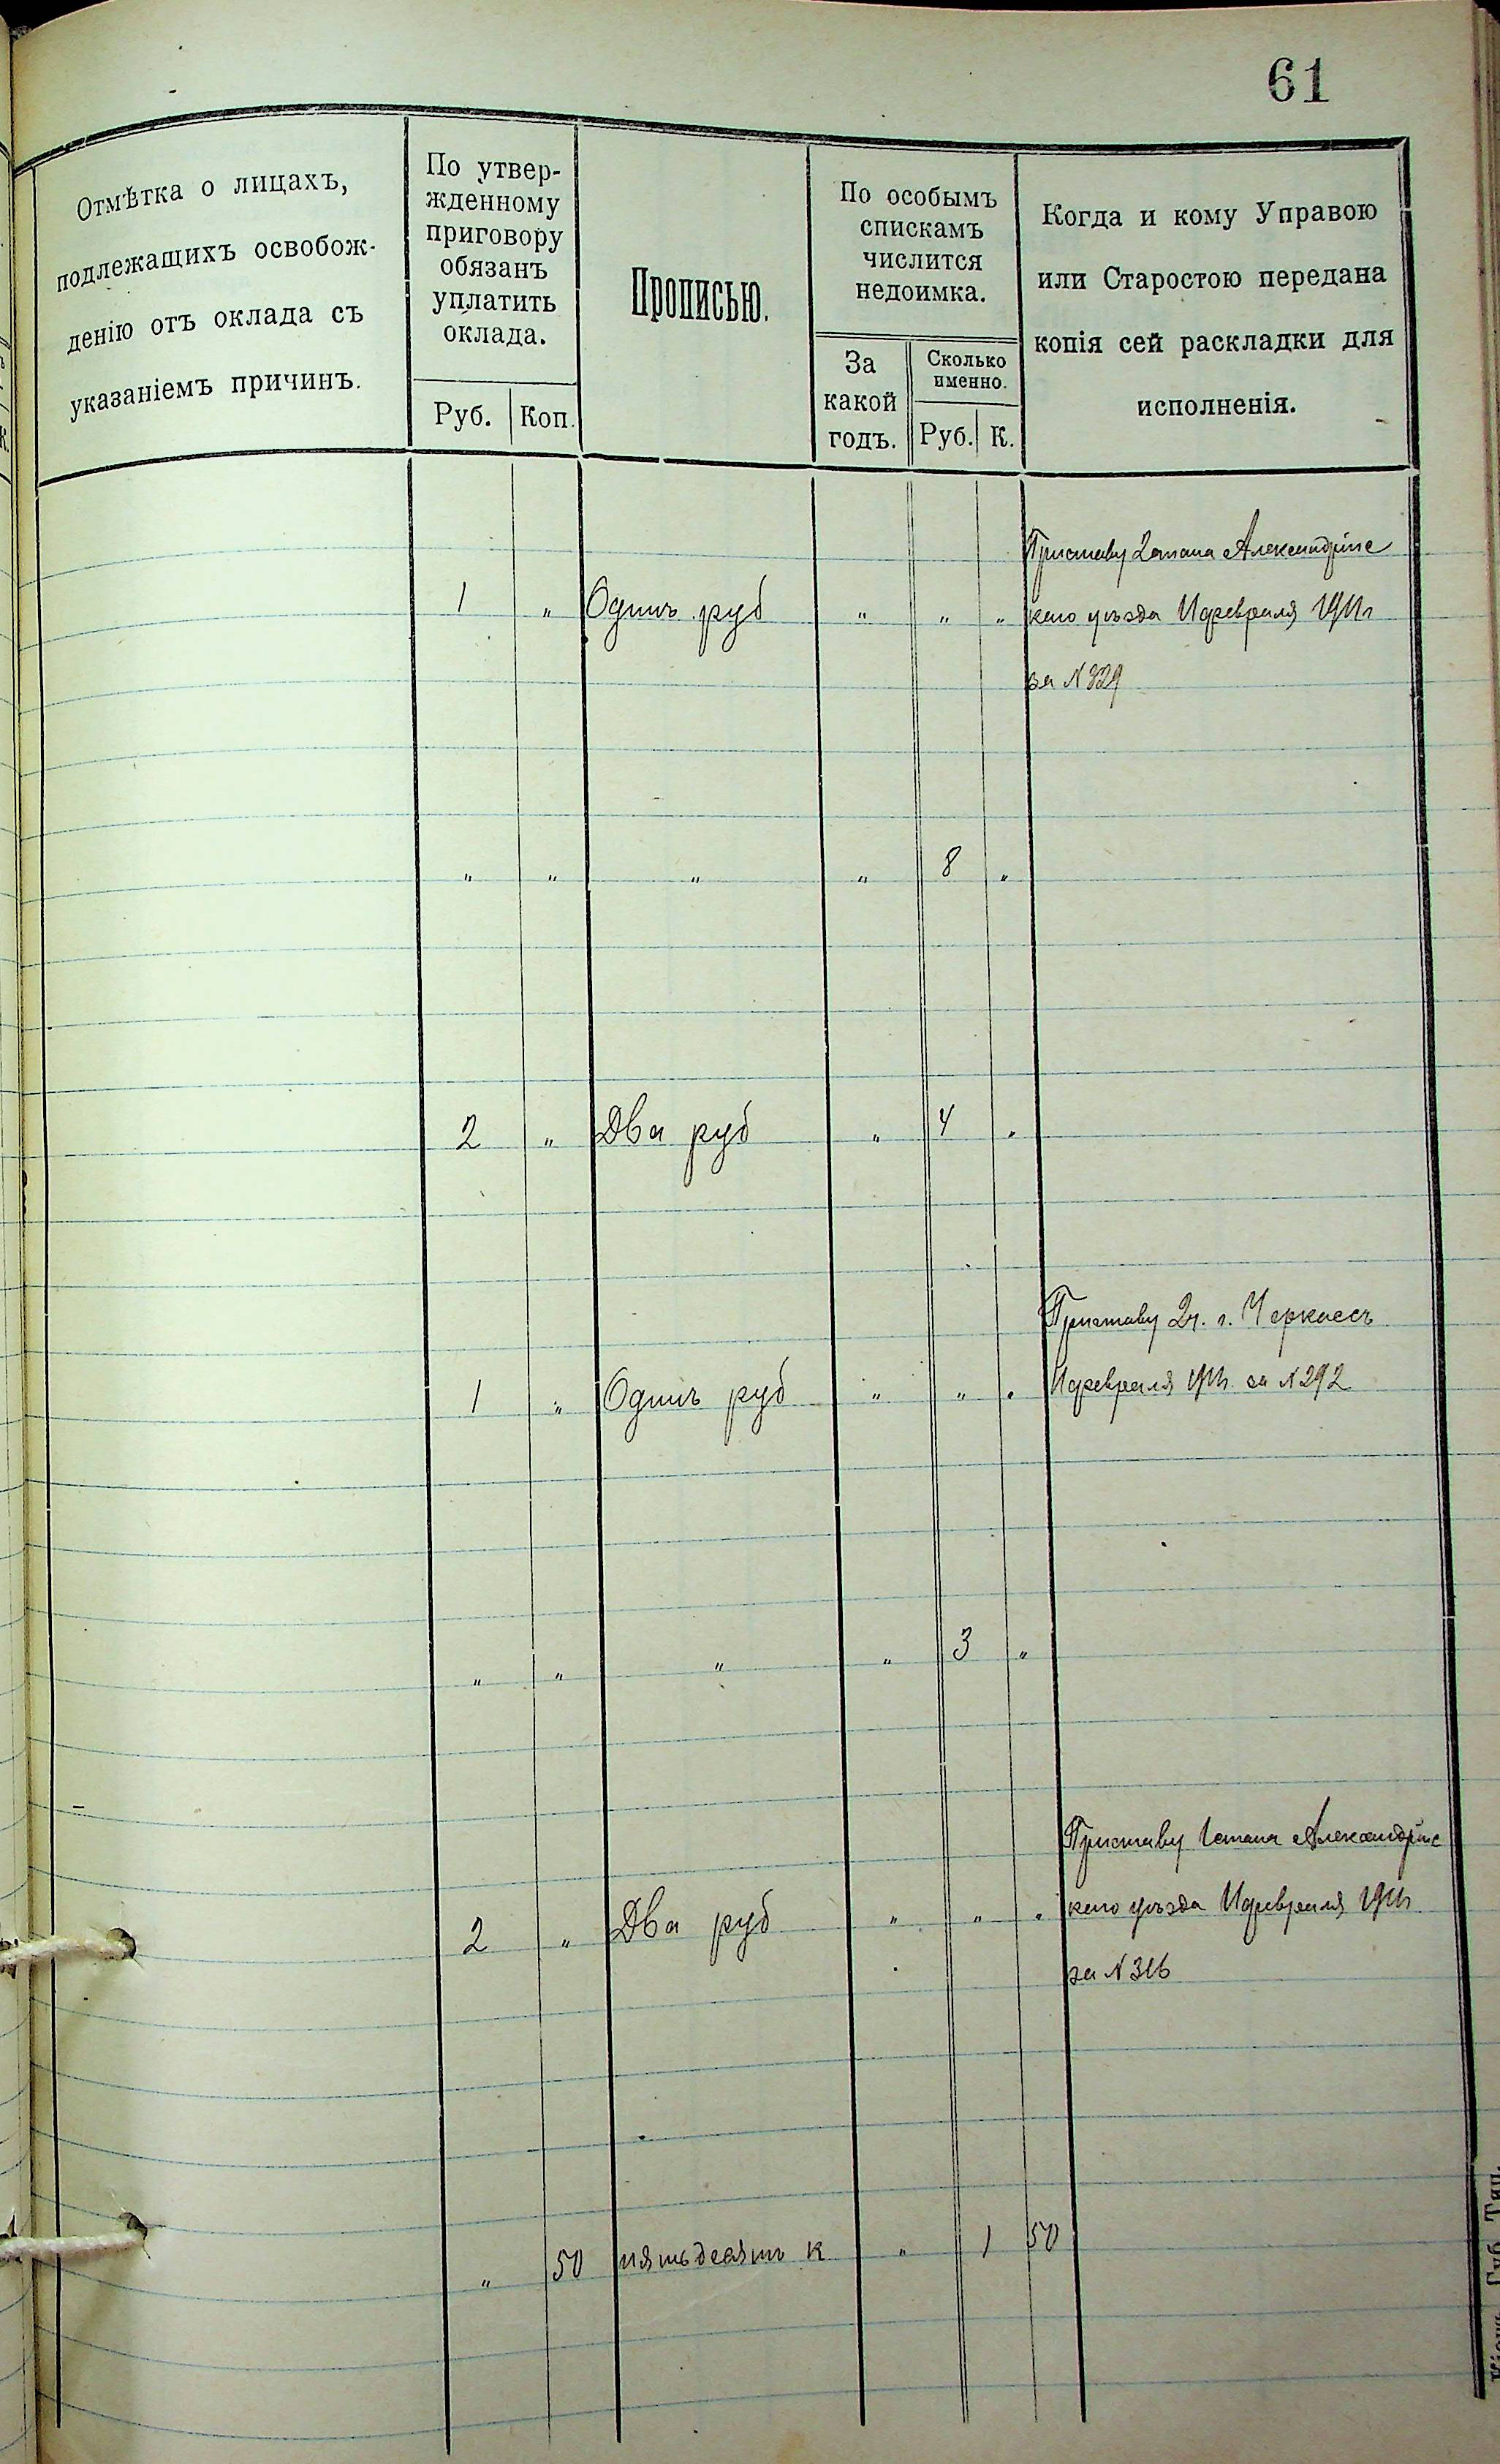 61
Отмѣтка о лицахъ,
подлежащихъ освобож-
денію отъ оклада съ
указаніемъ причинъ.
По утвер-
жденному
приговору
обязанъ
уплатить
оклада.
Руб. Коп.
Прописью.
По особымъ
спискамъ
числится
недоимка.
За
какой
годъ.
Сколько
именно.
Руб. К.
Когда и кому Управою
или Старостою передана
копія сей раскладки для
исполненія.
Приставу 2 стана Александрійс
1 " Одинъ руб " " " каго уѣзда 11 февраля 1911 г
за № 329
" " " " 8 "
2 " Два руб " 4 "
Приставу 2 ч. г. Черкассъ
1 " Одинъ руб " " " 11 февраля 1911 г. за № 292
" " " " 3 "
Приставу 1 стана Александрійс
2 " Два руб " " " каго уѣзда 11 февраля 1911 г
за № 316
" 50 пятьдесятъ к " 1 50
Губ. Тип.